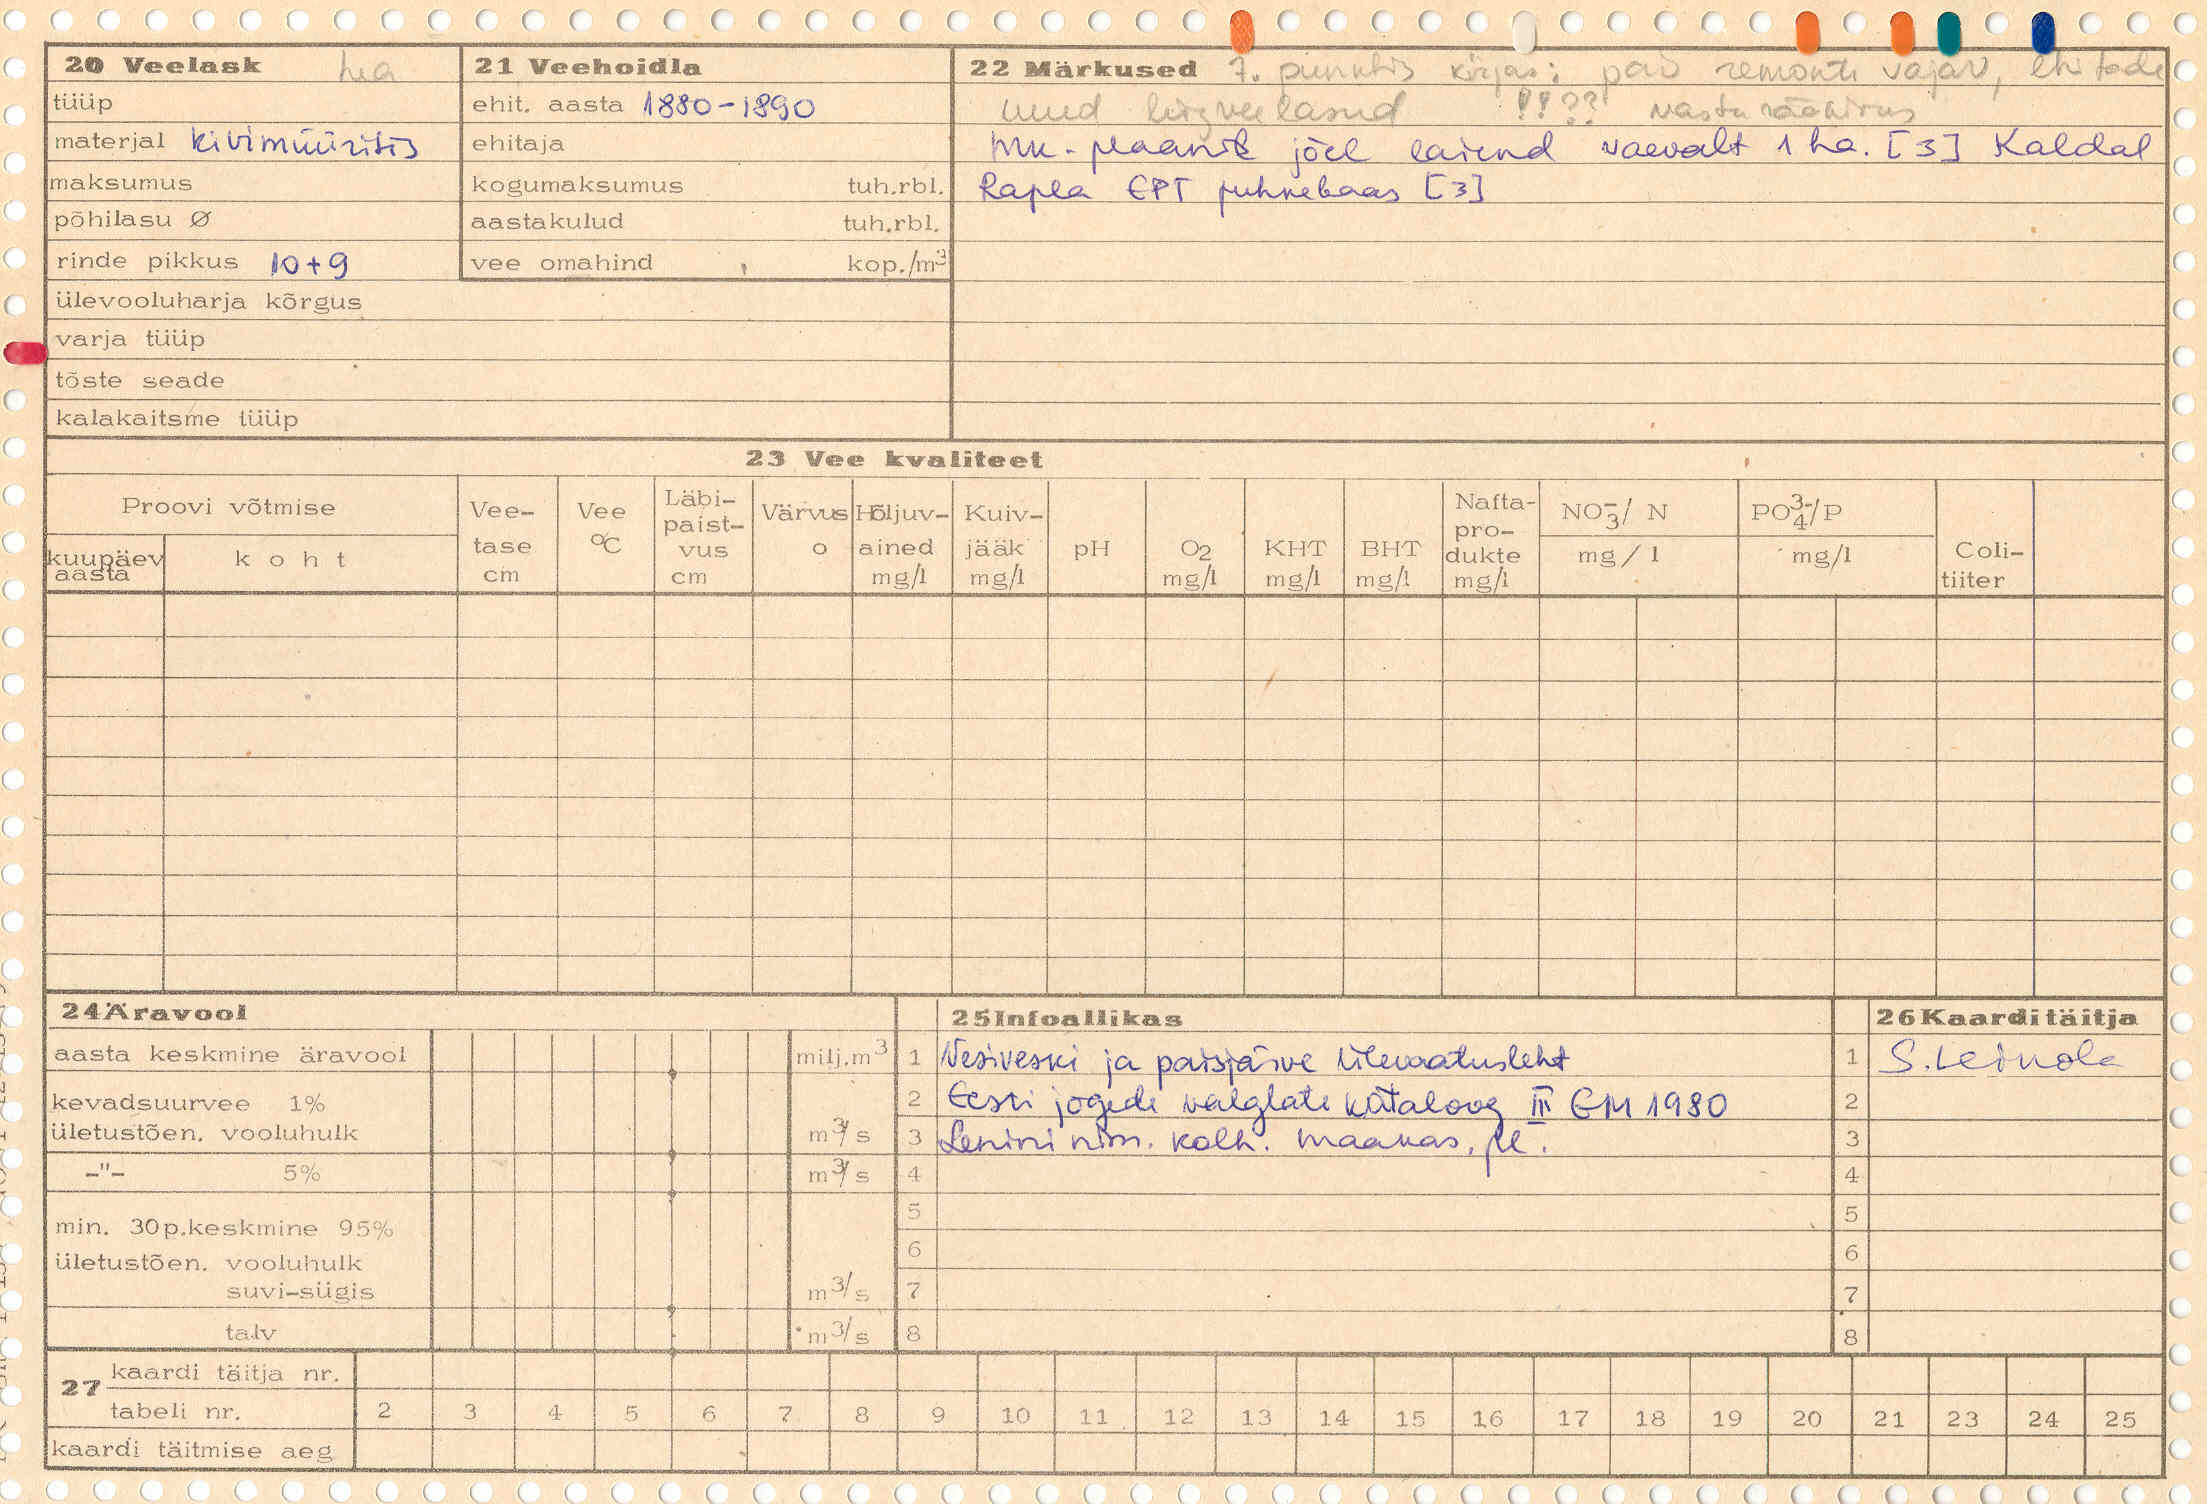 20 Veelask hea
tüüp
materjal kivimüüritis
maksumus
põhilasu Ø
rinde pikkus 10+9
ülevooluharja kõrgus
varja tüüp
tõste seade
kalakaitsme tüüp
21 Veehoidla
ehit. aasta 1880-1890
ehitaja
kogumaksumus tuh.rbl.
aastakulud tuh.rbl.
vee omahind kop./m³
22 Märkused 7. punktis kirjas: pais remonti vajav, ehitada
uued liigveelasud !!?? vasturääkivus
MK-plaanil jõel laiend vaevalt 1 ha. [3] Kaldal
Rapla EPT puhkebaas [3]
23 Vee kvaliteet
Proovi võtmise
kuupäev aasta
koht
Vee-
tase
cm
Vee
°C
Läbi-
paist-
vus
cm
Värvus
o
Hõljuv-
ained
mg/l
Kuiv-
jääk
mg/l
pH
O₂
mg/l
KHT
mg/l
BHT
mg/l
Nafta-
pro-
dukte
mg/l
NO₃⁻/ N
mg/l
PO₄³⁻/P
mg/l
Coli-
tiiter
24 Äravool
aasta keskmine äravool milj.m³
kevadsuurvee 1%
ületustõen. vooluhulk m³/s
-"- 5% m³/s
min. 30p.keskmine 95%
ületustõen. vooluhulk
suvi-sügis m³/s
talv m³/s
25 Infoallikas
1 Vesiveski ja paisjärve ülevaatusleht
2 Eesti jõgede valglate kataloog III EM 1980
3 Lenini nim. kolh. maakas. pl.
4
5
6
7
8
26 Kaardi täitja
1 S. Leinola
2
3
4
5
6
7
8
27 kaardi täitja nr.
tabeli nr. 2 3 4 5 6 7 8 9 10 11 12 13 14 15 16 17 18 19 20 21 23 24 25
kaardi täitmise aeg